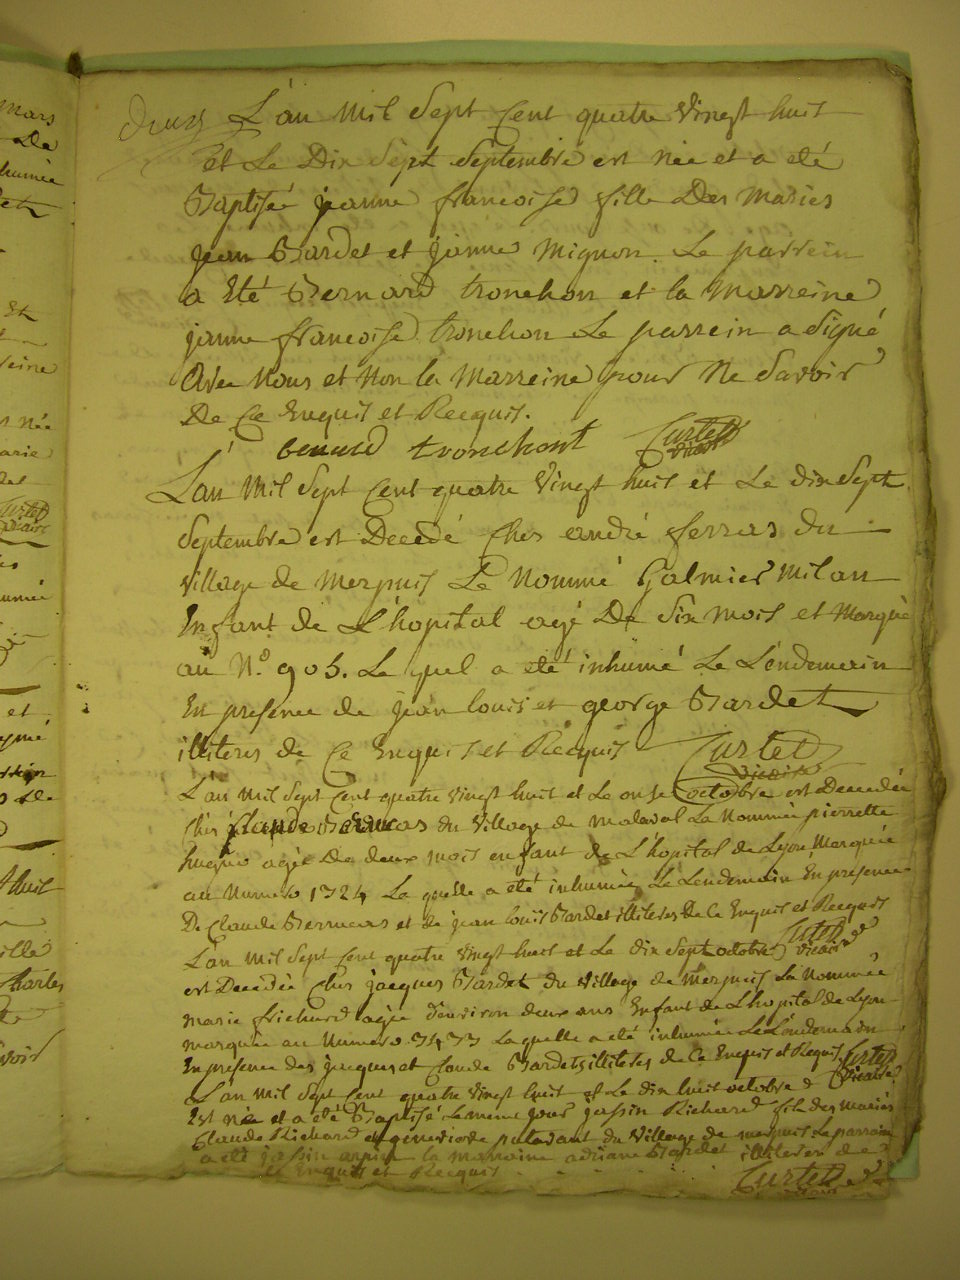 L'an Mil Sept Cent quatre Vingt huit
et Le Dix Sept Septembre est née et a été
Baptisée jeanne francoise fille Des Mariés
jean Bardet et janne Mignon. Le parrein
a Eté Bernard tronchon et la Marreine
janne francoise tronchon Le parrein a Signé
Avec Nous et Non la Marreine pour Ne Savoir
De Ce Enquis et Recquis.
benard tronchont Curtet vicaire
L'an Mil Sept Cent quatre Vingt huit et Le dix Sept
Septembre est Decedé Ches andré ferras du
village de Merpuis Le Nommé Galmier Milan
Enfant de L'hopital agé De Six Mois et Marqué
au N.o 905. Le quel a eté inhumé Le Lendemain
En presence de jean louis et george Bardet
illiteres de Ce Enquis et Recquis Curtet vicaire
L'an Mil Sept Cent quatre Vingt huit et Le onse octobre est Decedée
Chés Claude du Village de Malaval La Nommée pierrette
hugue agée De deux Mois enfant de L'hopital de Lyon Marquée
au Numero 1724 La quelle a été inhumée Le Lendemain En presence
De Claude et de jean louis Bardet illiteres de Ce Enquis et Recquis
L'an Mil Sept Cent quatre Vingt huit et Le dix Sept octobre Curtet vicaire
est Decedée Ches jacques Bardet du Village de Merpuis La Nommée
Marie Richard agée d'environ deux ans Enfant de L'hopital de Lyon
marquée au Numero La quelle a eté inhumée Le Lendemain
En presence des jacques et Claude Bardet illiteres de Ce Enquis et Requis Curtet vicaire
L'an Mil Sept Cent quatre Vingt huit et Le dix huit octobre
Est née et a eté Baptisé Le meme jour Richard fils des Mariés
Claude Richard et du Village de merpuis Le parrain
a eté la marraine adriane Bardet illiteres de
Ce Enquis et Recquis Curtet vicaire